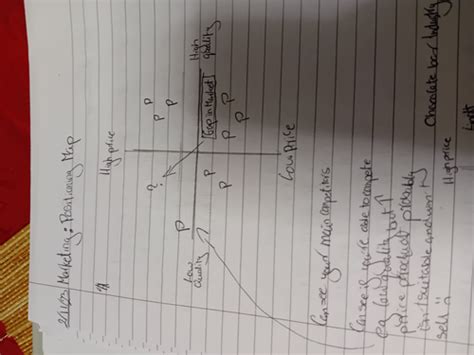 Marketing: Positioning Map
High price
P
P
P
?
High
quality
Gap in Market
P
P
P
P
P
P
P
Low
quality
Low Price
Can see your main competitors
Can see if you're able to compete
eg low quality but ↑
price product possibly
isn't suitable and won't
sell
Chocolate bar Industry
High price